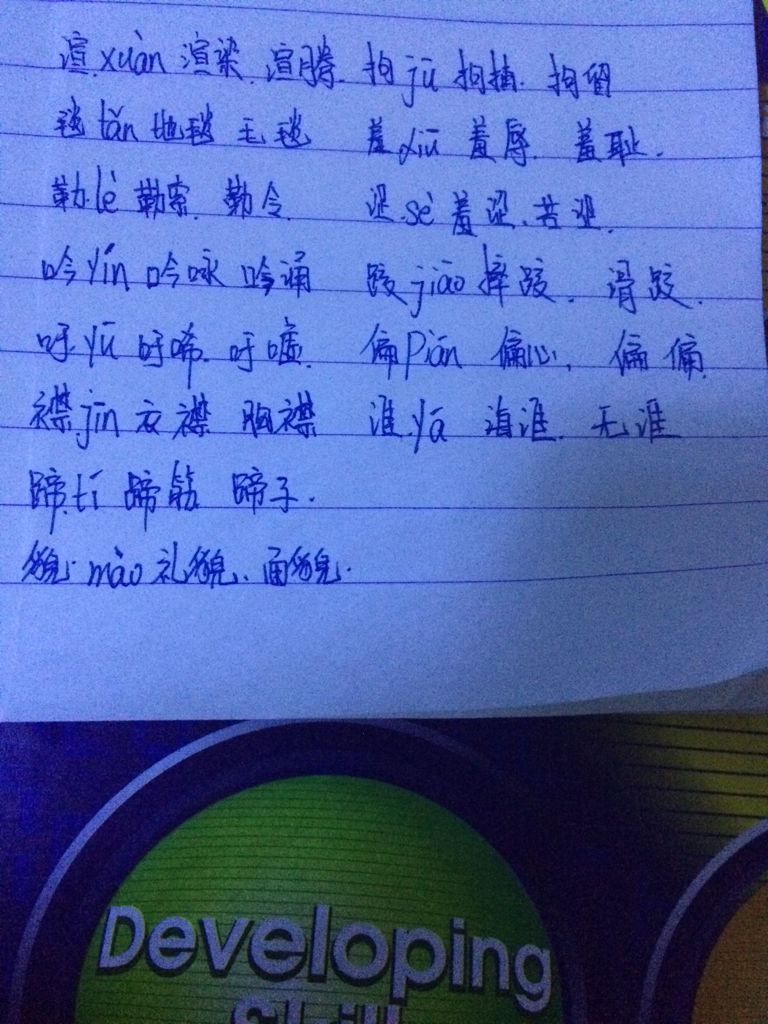 渲 xuàn 渲染 渲腾 拘 jū 拘捕 拘留
毯 tǎn 地毯 毛毯 羞 xiū 羞辱 羞耻.
勒 lè 勒索 勒令 涩 sè 羞涩、苦涩.
吟 yín 吟咏 吟诵 跤 jiāo 摔跤、滑跤.
吁 yū 吁唏 吁嘘 偏 piān 偏心, 偏偏
襟 jīn 衣襟 胸襟 涯 yá 海涯 无涯
蹄 tí 蹄筋 蹄子.
貌 mào 礼貌、面貌.
Developing
Skill